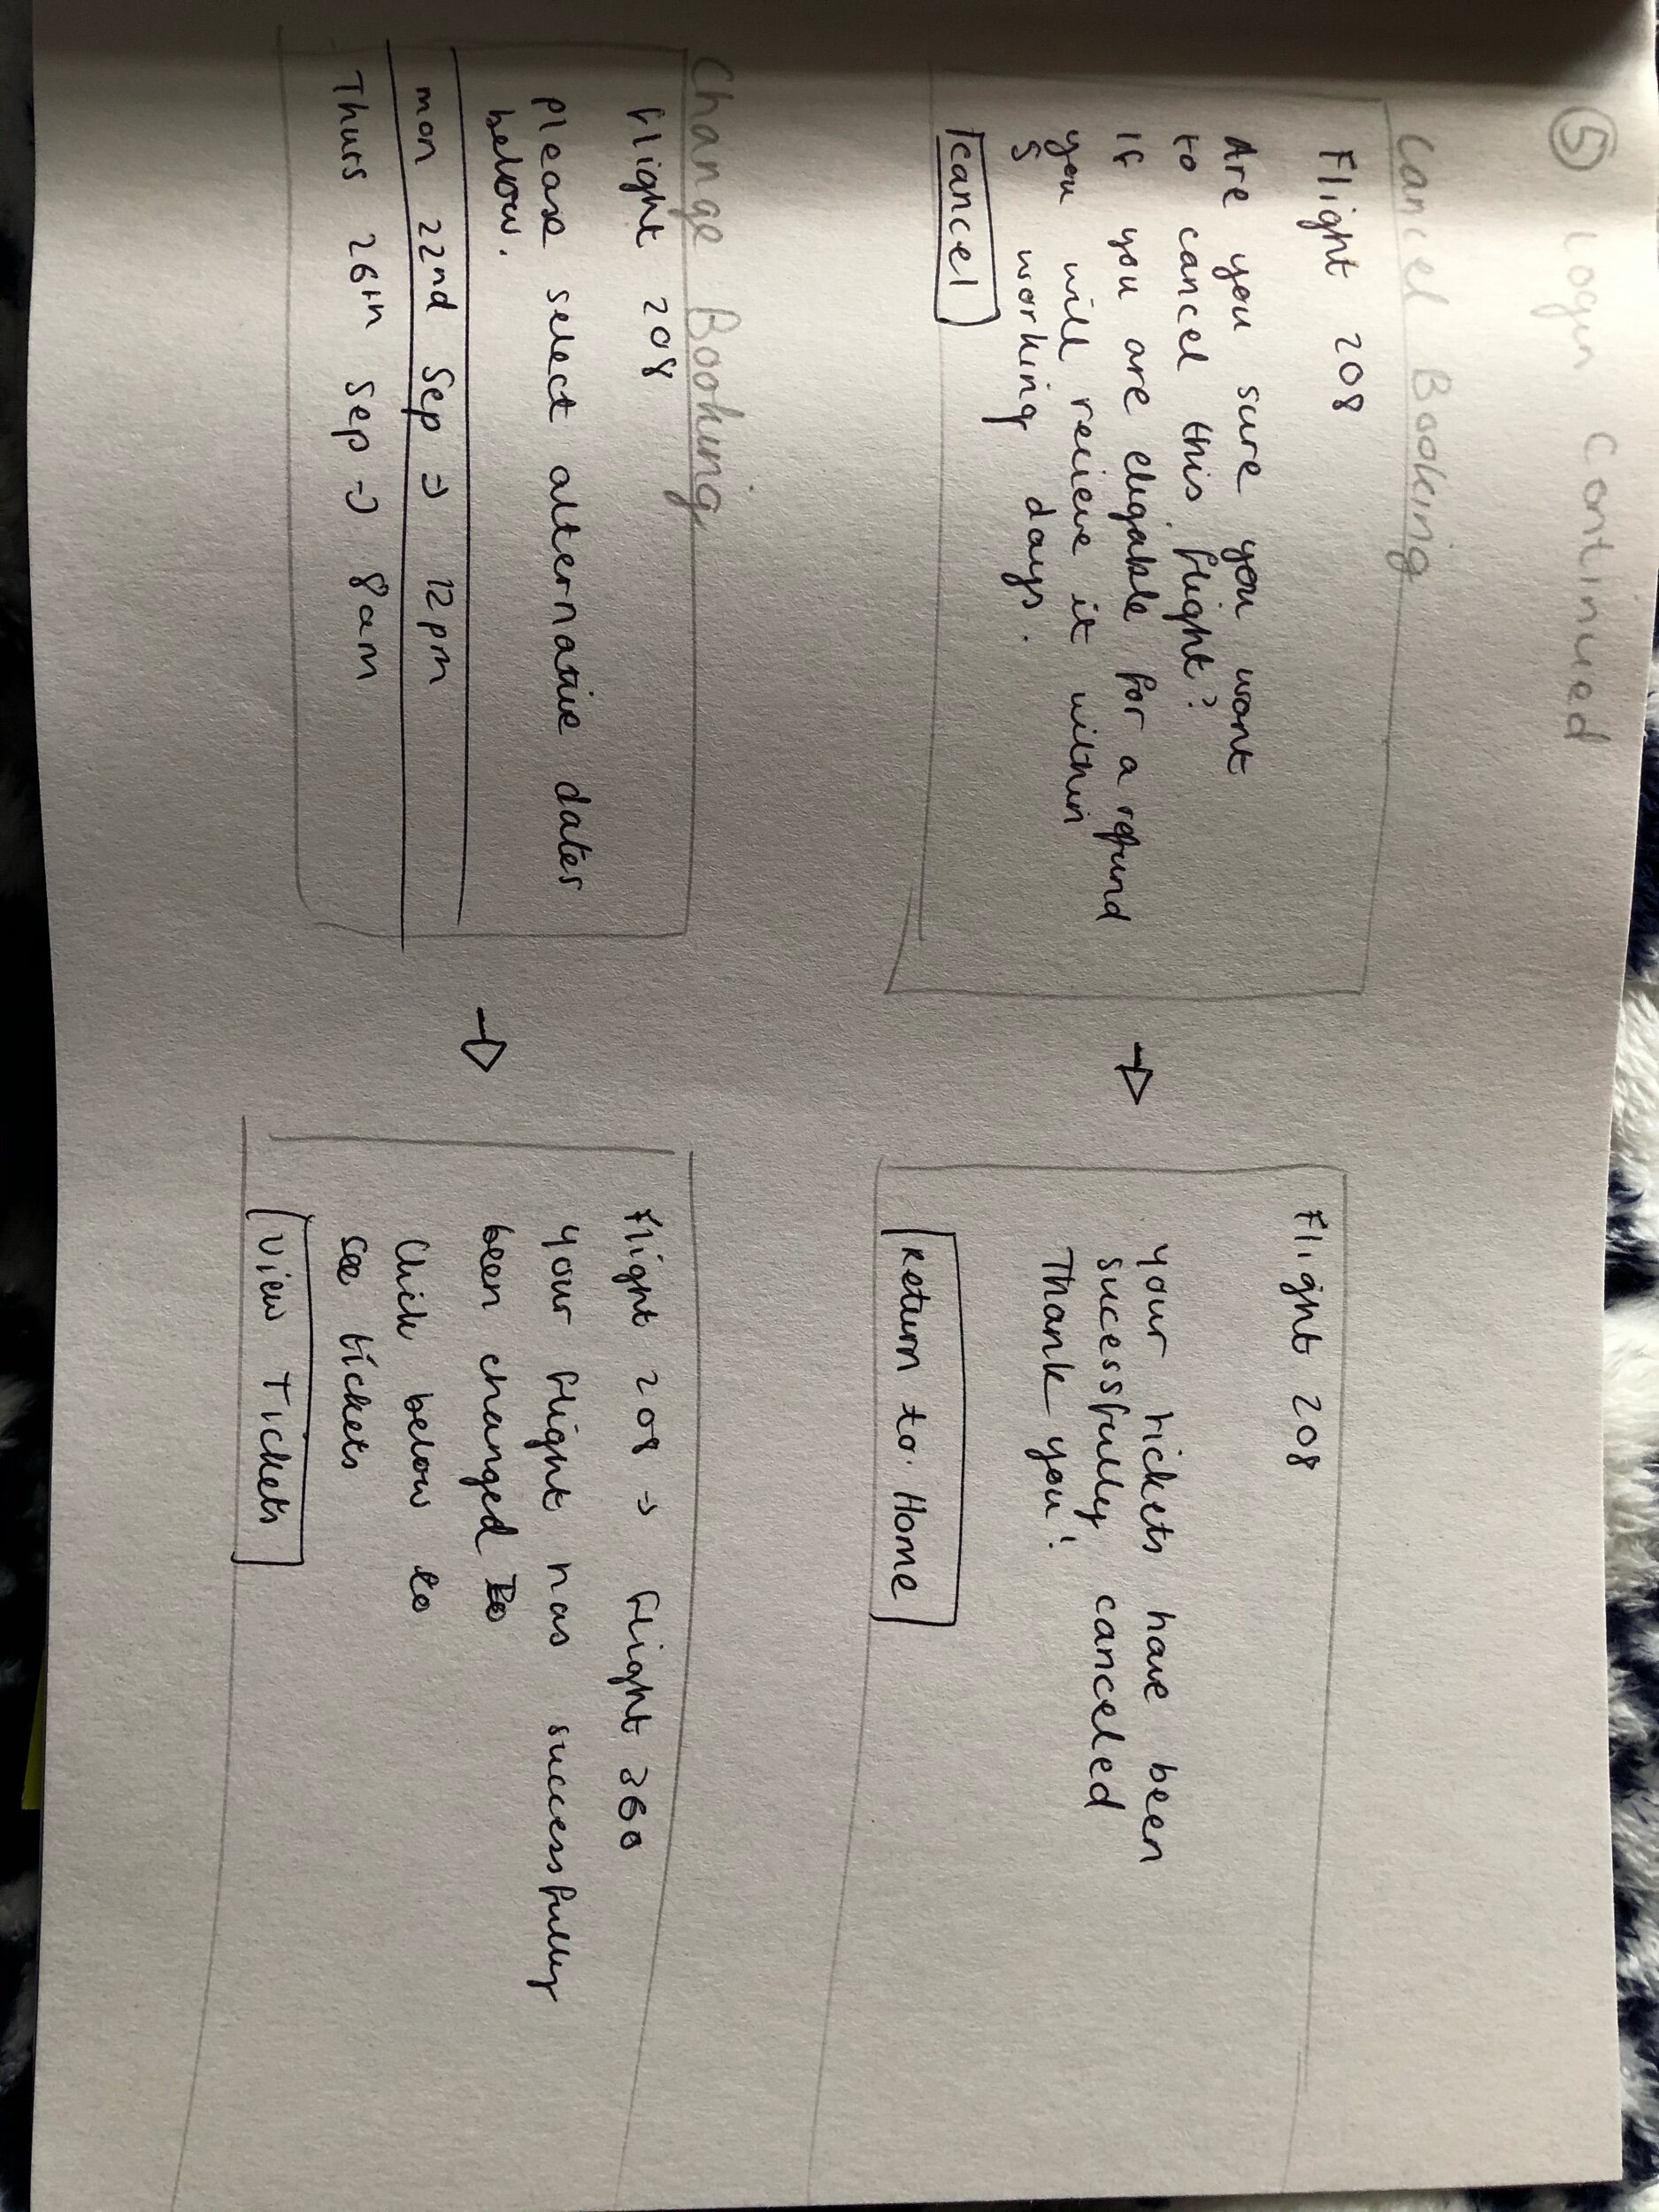 ⑤ Login continued
Cancel Booking
Flight 208
Are you sure you want
to cancel this flight?
If you are eligable for a refund
you will recieve it within
5 working days.
Cancel
Flight 208
Your tickets have been
sucessfully canceled
Thank you!
Return to Home
Change Booking
Flight 208
Please select alternative dates
below.
mon 22nd Sep → 12pm
Thurs 26th Sep → 8am
Flight 208 → Flight 360
Your flight has successfully
been changed to
Click below to
see tickets
View Tickets